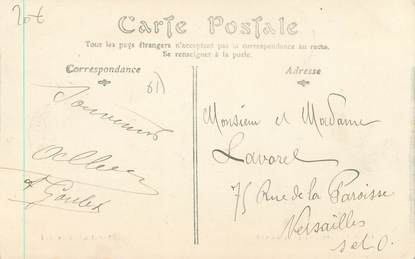 20t
Carte Postale
Tous les pays étrangers n'acceptent pas la correspondance au recto.
Se renseigner à la poste.
Correspondance
Adresse
Souvenirs
Goulet
Monsieur et Madame
Lavorel
75 Rue de la Paroisse
Versailles
S et O.